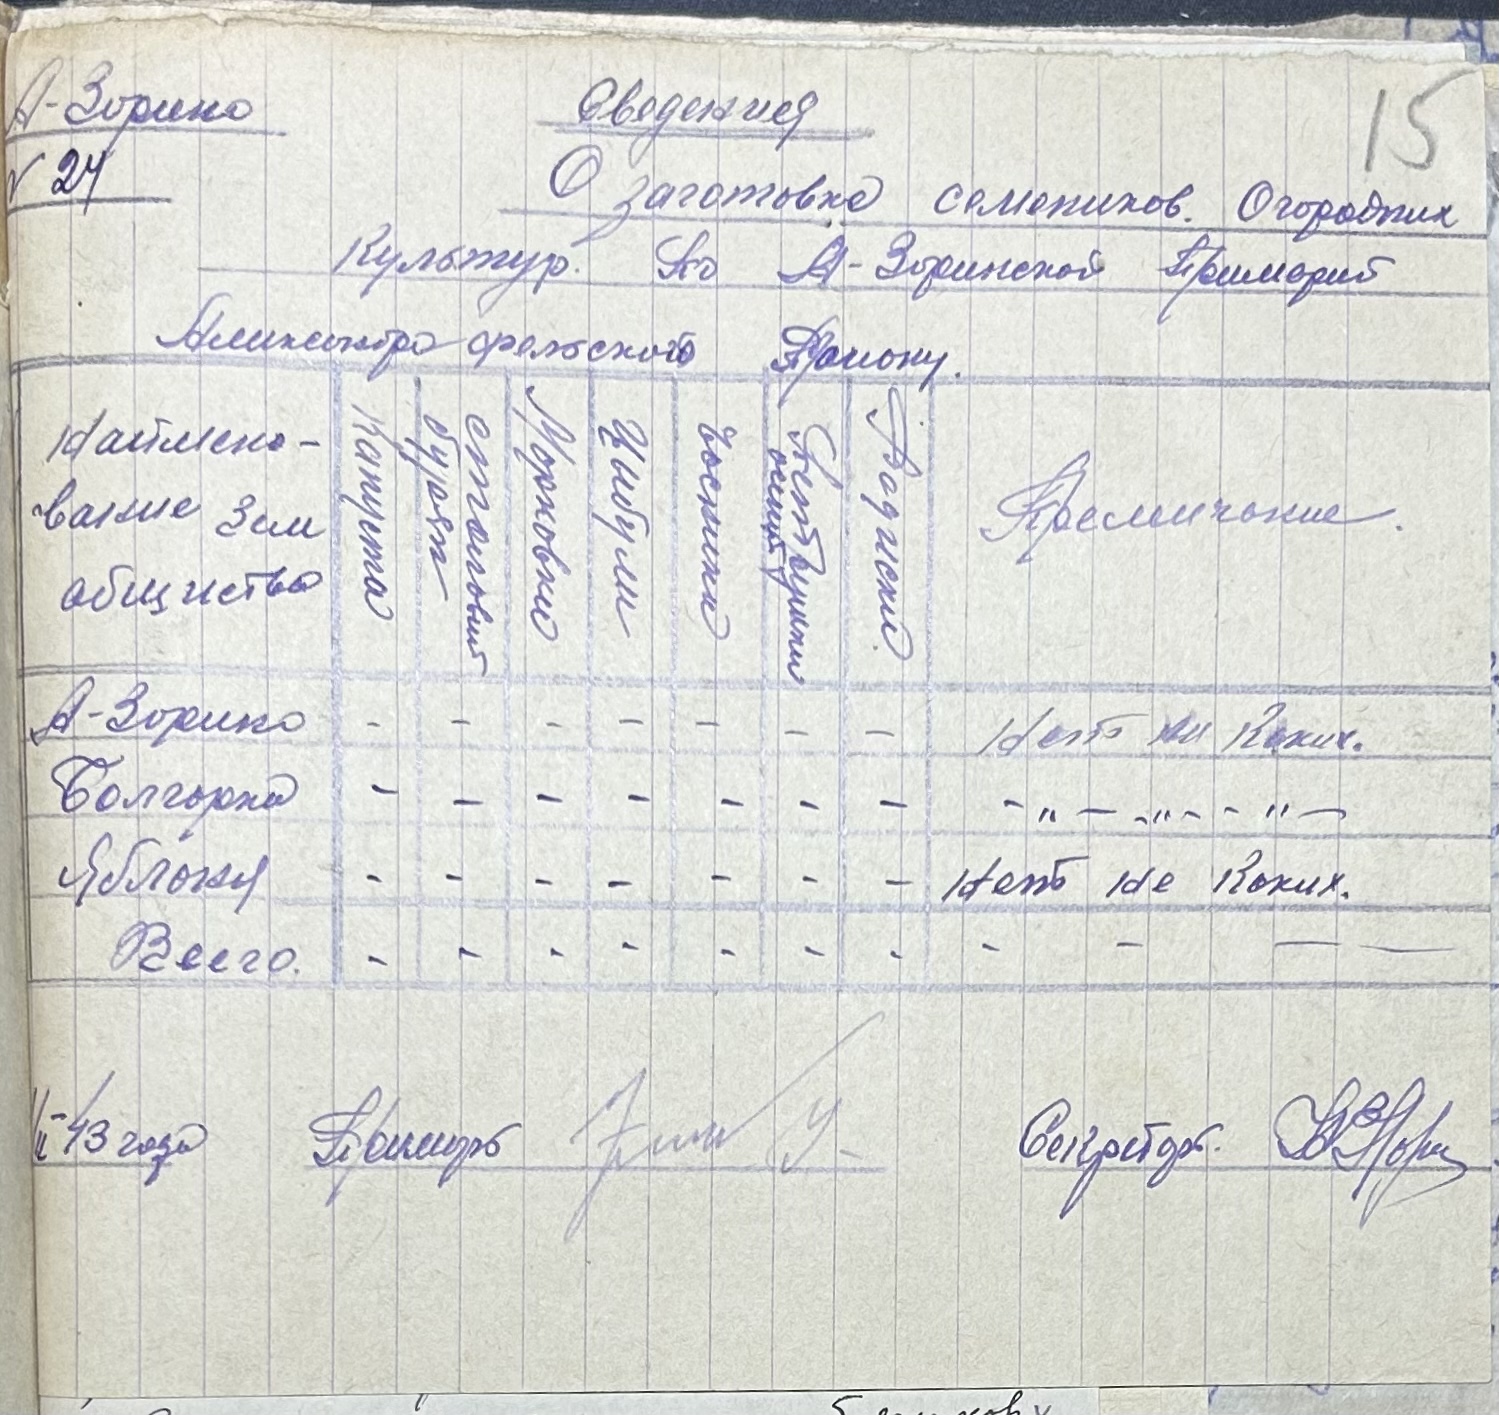 А-Зорино
Сведения
15
№ 24
О заготовке семеников. Огородних
Культур. По А-Зоринской Примарий
Александро фельского Району.
Наймено-
вание Зем
общиства
Капуста
столовый
буряк
Морковки
Цыбули
Чосники
Петрушки
Радиски.
Приемичание.
А-Зорино - - - - - - - Нет ни Каких.
Болгарка - - - - - - - - „ - - „ - - „ -
Яблоня - - - - - - - Нет Не Каких.
Всего. - - - - - - - - - — —
43 года Примарь Секретар.